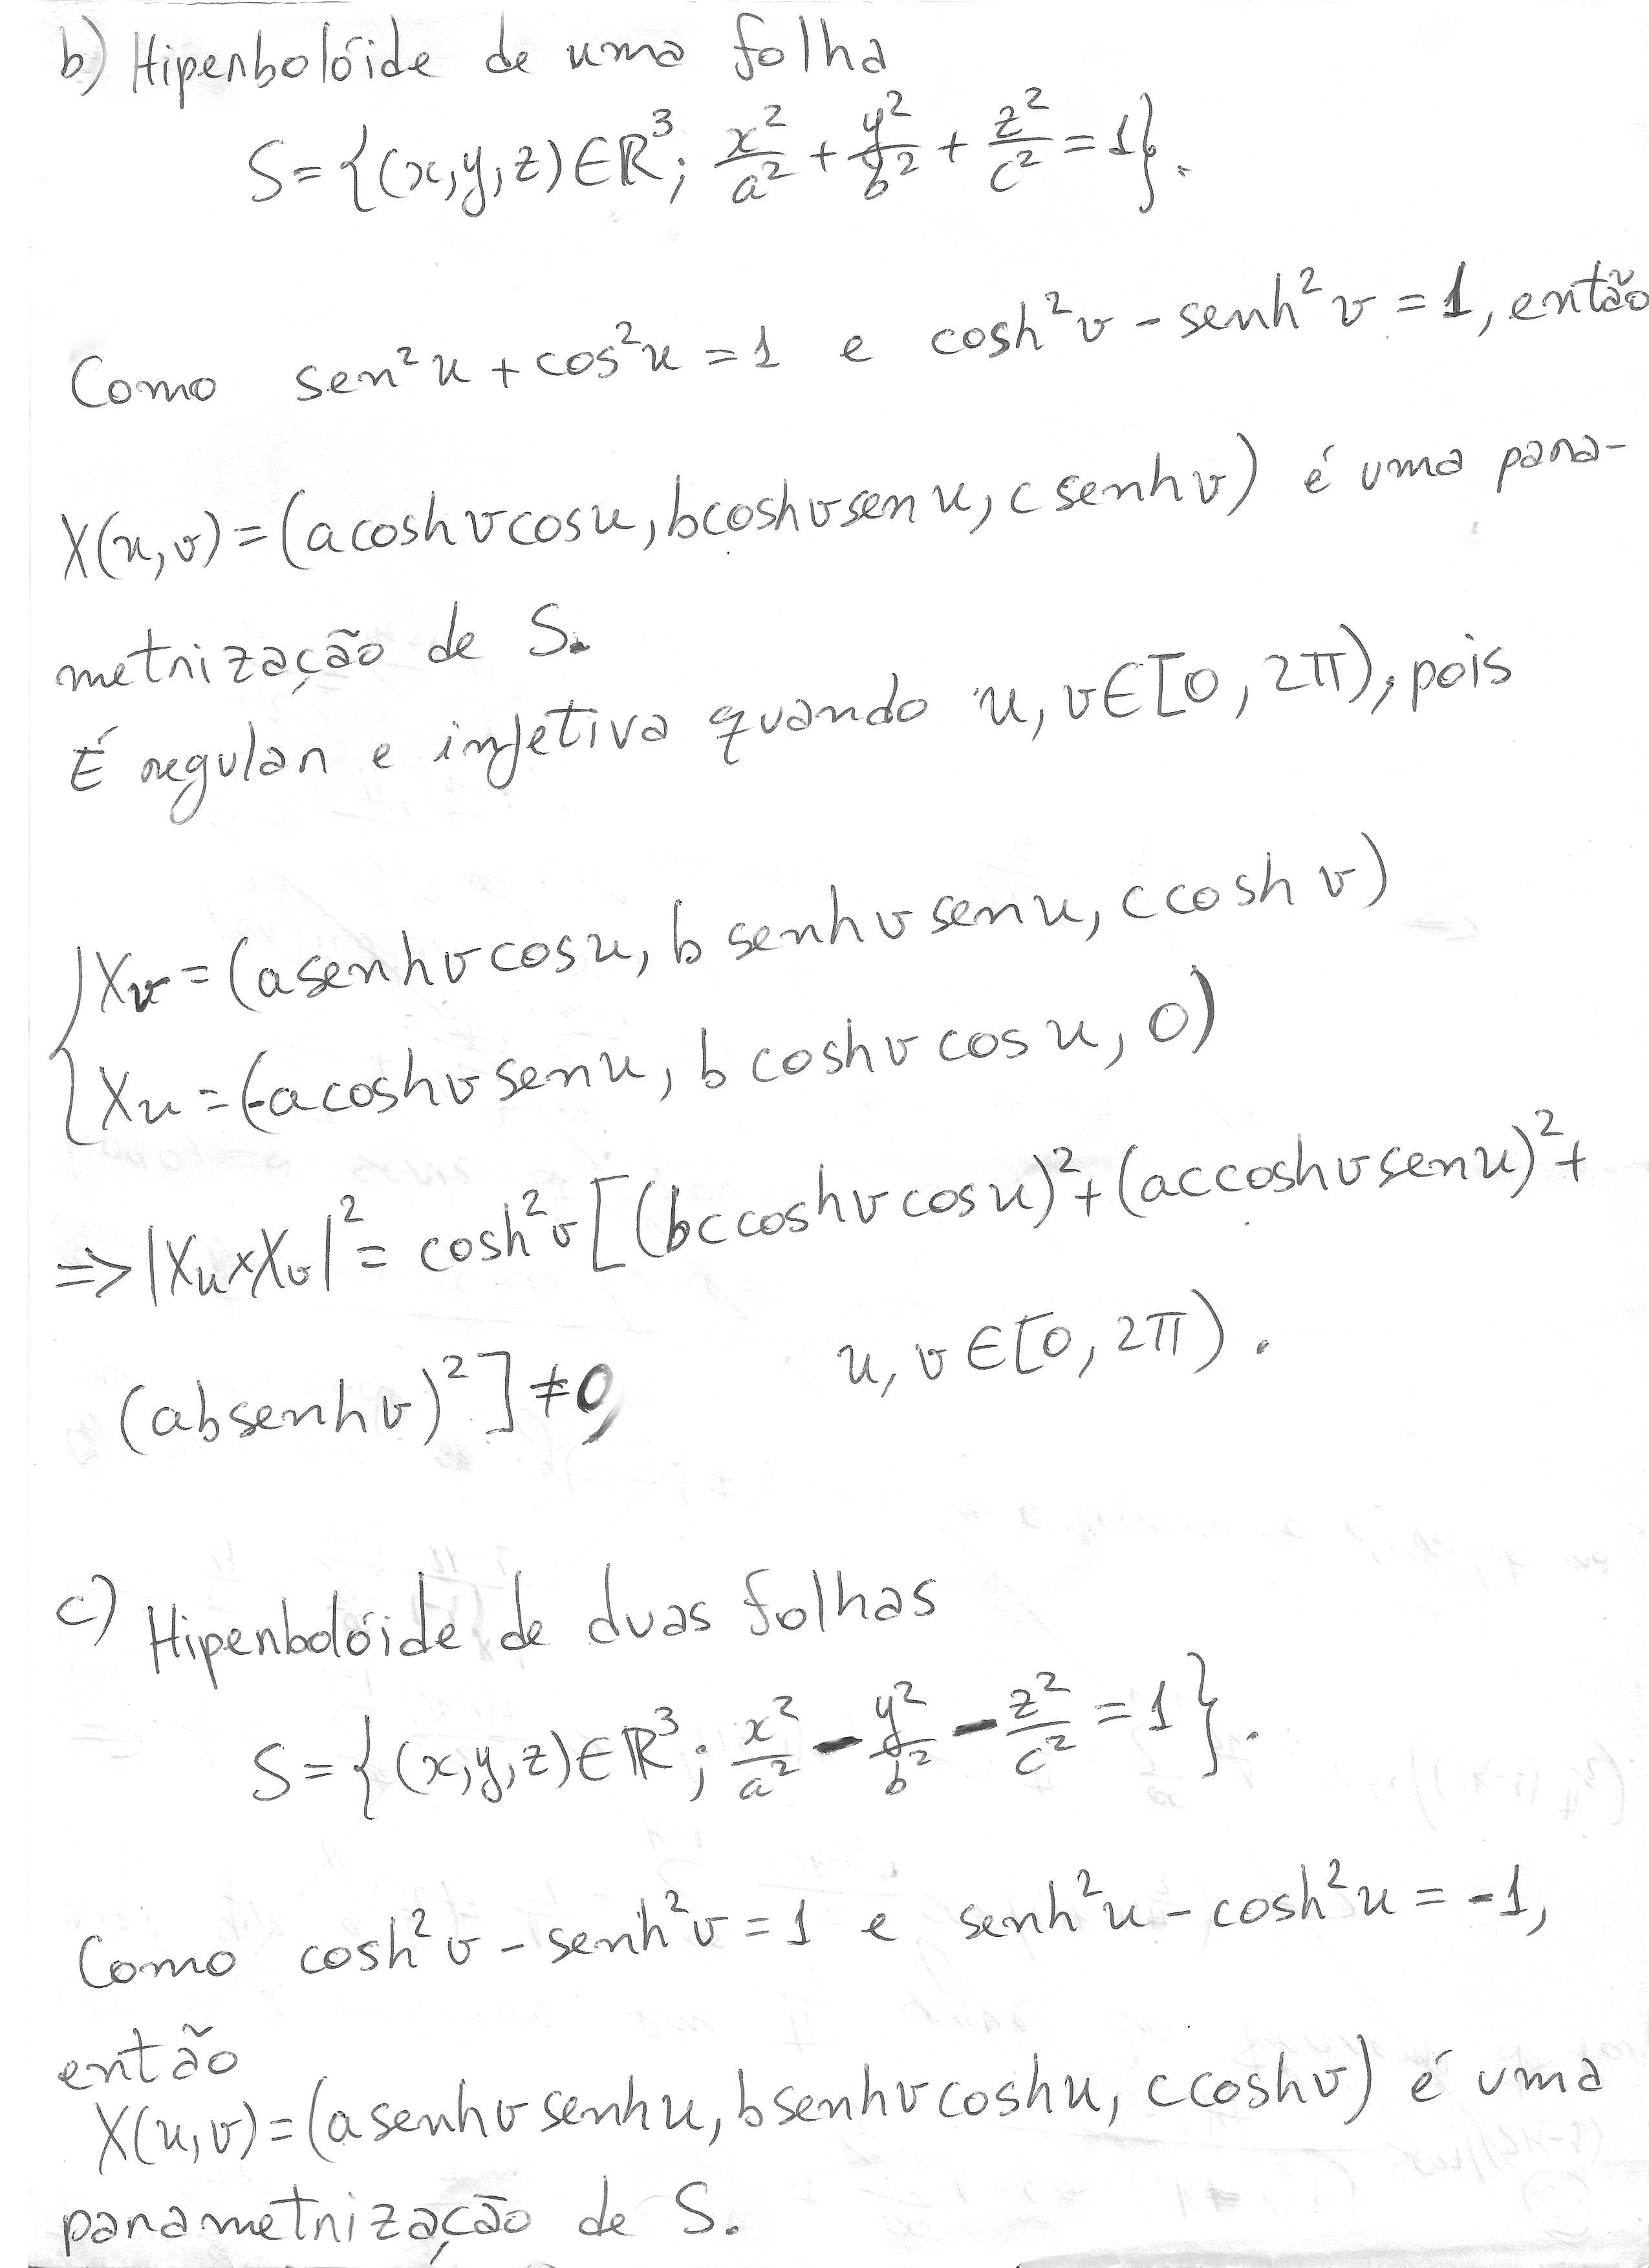 b) Hiperbolóide de uma folha
S={(x,y,z)∈ℝ³; x²/a² + y²/b² + z²/c² = 1}.
Como sen²u + cos²u = 1 e cosh²v - senh²v = 1, então
X(u,v)=(a cosh v cos u, b cosh v sen u, c senh v) é uma para-
metrização de S.
É regular e injetiva quando u, v∈[0, 2π), pois
{Xv = (a senh v cos u, b senh v sen u, c cosh v)
{Xu = (-a cosh v sen u, b cosh v cos u, 0)
⇒ |Xu×Xv|² = cosh²v [(bc cosh v cos u)² + (ac cosh v sen u)² +
(ab senh v)²] ≠ 0, u, v ∈ [0, 2π).
c) Hiperbolóide de duas folhas
S={(x,y,z)∈ℝ³; x²/a² - y²/b² - z²/c² = 1}.
Como cosh²v - senh²v = 1 e senh²u - cosh²u = -1,
então
X(u,v)=(a senh v senh u, b senh v cosh u, c cosh v) é uma
parametrização de S.